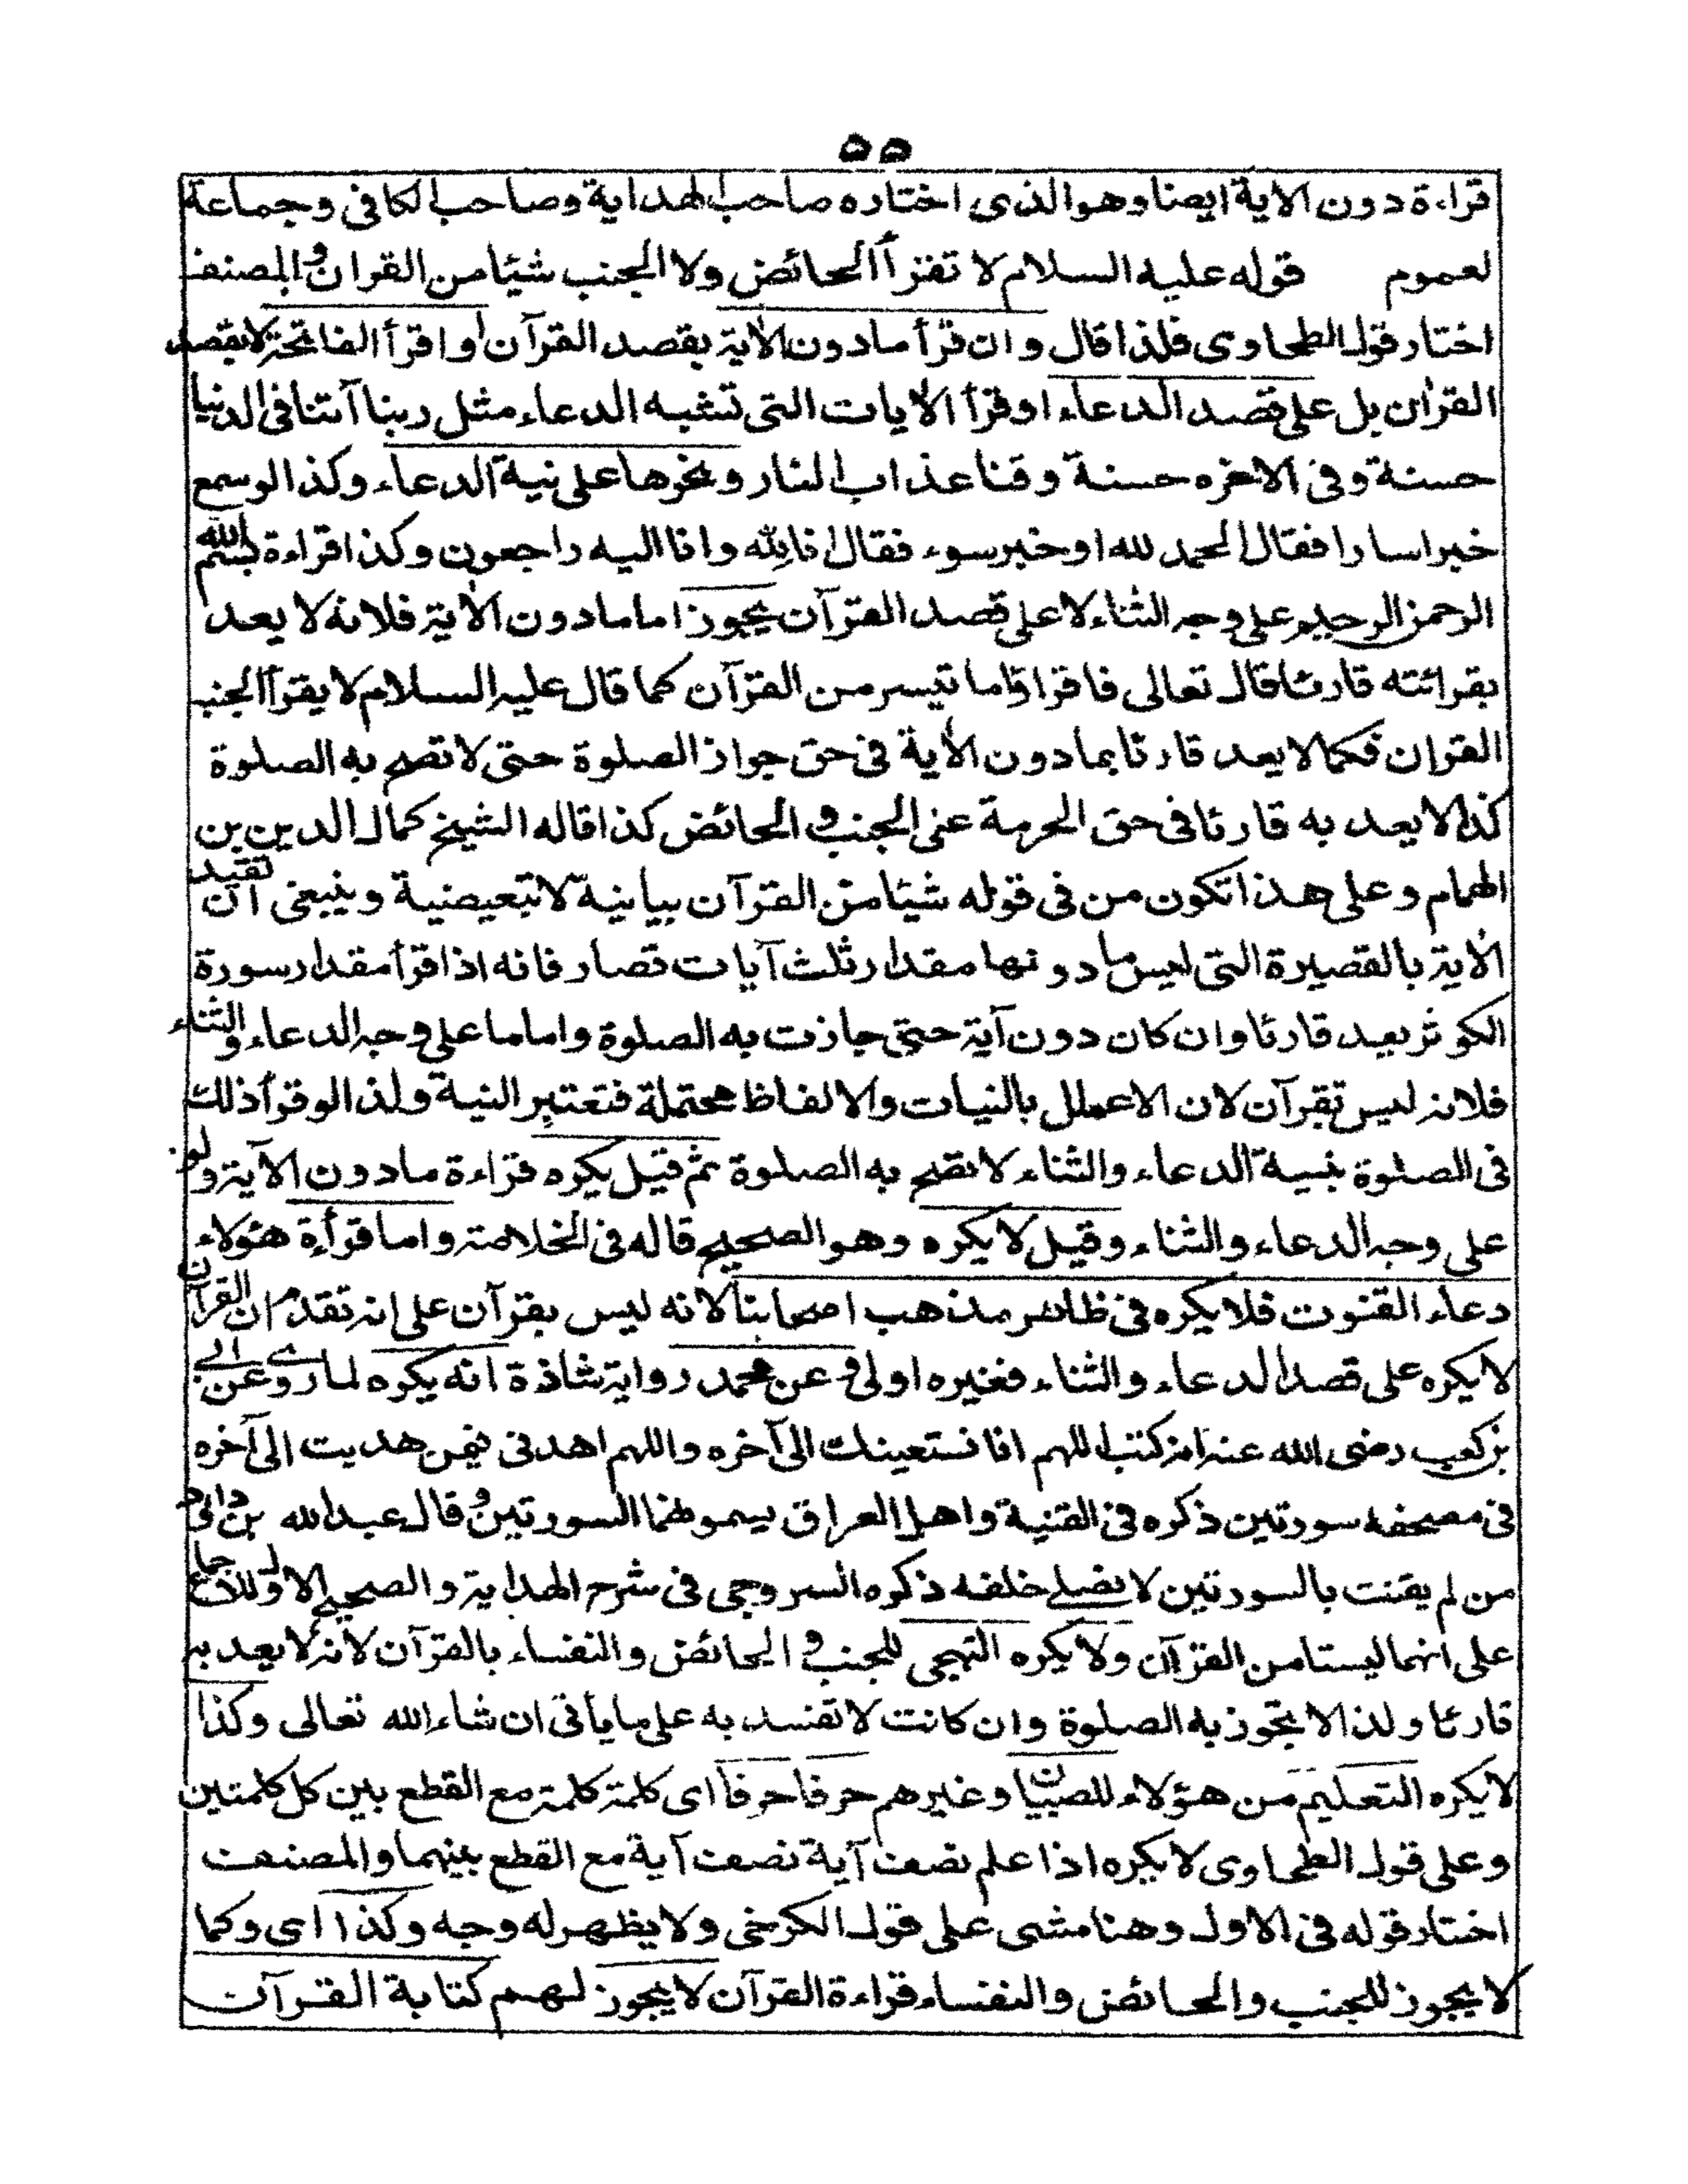 ٥٥
قراءة دون الاية ايضا وهو الذى اختاره صاحب الهداية وصاحب الكافى وجماعة
لعموم قوله عليه السلام لا تقرأ الحائض ولا الجنب شيئا من القران والمصنف
اختار قول الطحاوى فلذا قال وان قرأ ما دون الآية بقصد القرآن او اقرأ الفاتحة لا بقصد
القرآن بل على قصد الدعاء او قرأ الآيات التى تشبه الدعاء مثل ربنا آتنا فى الدنيا
حسنة وفى الاخره حسنة وقنا عذاب النار ونحوها على نية الدعاء وكذا لو سمع
خبرا سارا فقال الحمد لله او خبر سوء فقال انا لله وانا اليه راجعون وكذا قراءة بسم الله
الرحمن الرحيم على وجه الثناء لا على قصد القرآن يجوز اما ما دون الآية فلانه لا يعد
بقرائته قارئا قال تعالى فاقرؤا ما تيسر من القرآن كما قال عليه السلام لا يقرأ الجنب
القران فكما لا يعد قارئا بما دون الآية فى حق جواز الصلوة حتى لا تصح به الصلوة
كذا لا يعد به قارئا فى حق الحرمة عنى الجنب و الحائض كذا قاله الشيخ كمال الدين بن
الهمام وعلى هذا تكون من فى قوله شيئا من القرآن بيانية لا تبعيضية وينبغى ان تقيد
الآية بالقصيرة التى ليس ما دونها مقدار ثلث آيات قصار فانه اذا قرأ مقدار سورة
الكوثر يعد قارئا وان كان دون آية حتى جازت به الصلوة واما ما على وجه الدعاء والثناء
فلانه ليس بقرآن لان الاعمال بالنيات والالفاظ محتملة فتعتبر النية ولذا لو قرأ ذلك
فى الصلوة بنية الدعاء والثناء لا تصح به الصلوة ثم قيل يكره قراءة ما دون الآية ولو
على وجه الدعاء والثناء وقيل لا يكره وهو الصحيح قاله فى الخلاصة واما قرأة هؤلاء
دعاء القنوت فلا يكره فى ظاهر مذهب اصحابنا لانه ليس بقرآن على انه تقدم ان القرآن
لا يكره على قصد الدعاء والثناء فغيره اولى و عن محمد رواية شاذة انه يكره لما روى عن ابى
بن كعب رضى الله عنه انه كتب اللهم انا نستعينك الى آخره واللهم اهدنى فيمن هديت الى آخره
فى مصحفه سورتين ذكره فى القنية واهل العراق يسمونهما السورتين وقال عبد الله بن داود
من لم يقنت بالسورتين لا يصلى خلفه ذكره السروجى فى شرح الهداية والصحيح الاول للاجماع
على انهما ليستا من القرآن ولا يكره التهجى للجنب و الحائض والنفساء بالقرآن لانه لا يعد به
قارئا ولذا لا يجوز به الصلوة وان كانت لا تفسد به على ما يأتى ان شاء الله تعالى وكذا
لا يكره التعليم من هؤلاء للصبيان وغيرهم حرفا حرفا اى كلمة كلمة مع القطع بين كل كلمتين
وعلى قول الطحاوى لا يكره اذا علم نصف آية نصف آية مع القطع بينهما والمصنف
اختار قوله فى الاول وهنا مشى على قول الكرخى ولا يظهر له وجه وكذا اى وكما
لا يجوز للجنب والحائض والنفساء قراءة القرآن لا يجوز لهم كتابة القرآن